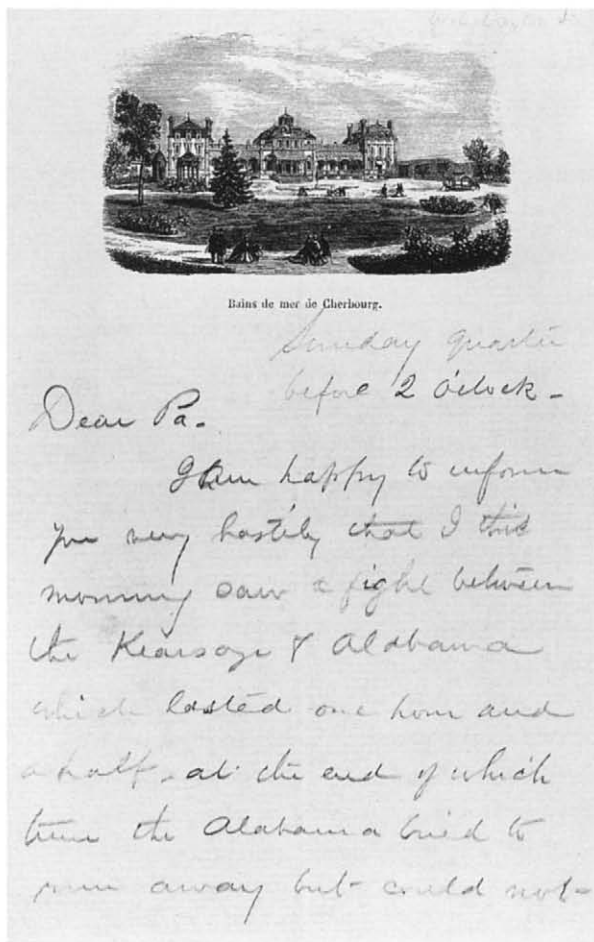 Bains de mer de Cherbourg.
Sunday quarter
before 2 o'clock -
Dear Pa.
I am happy to inform
you very hastily that I this
morning saw a fight between
the Kearsage & Alabama
which lasted one hour and
a half, at the end of which
time the Alabama tried to
run away but could not -